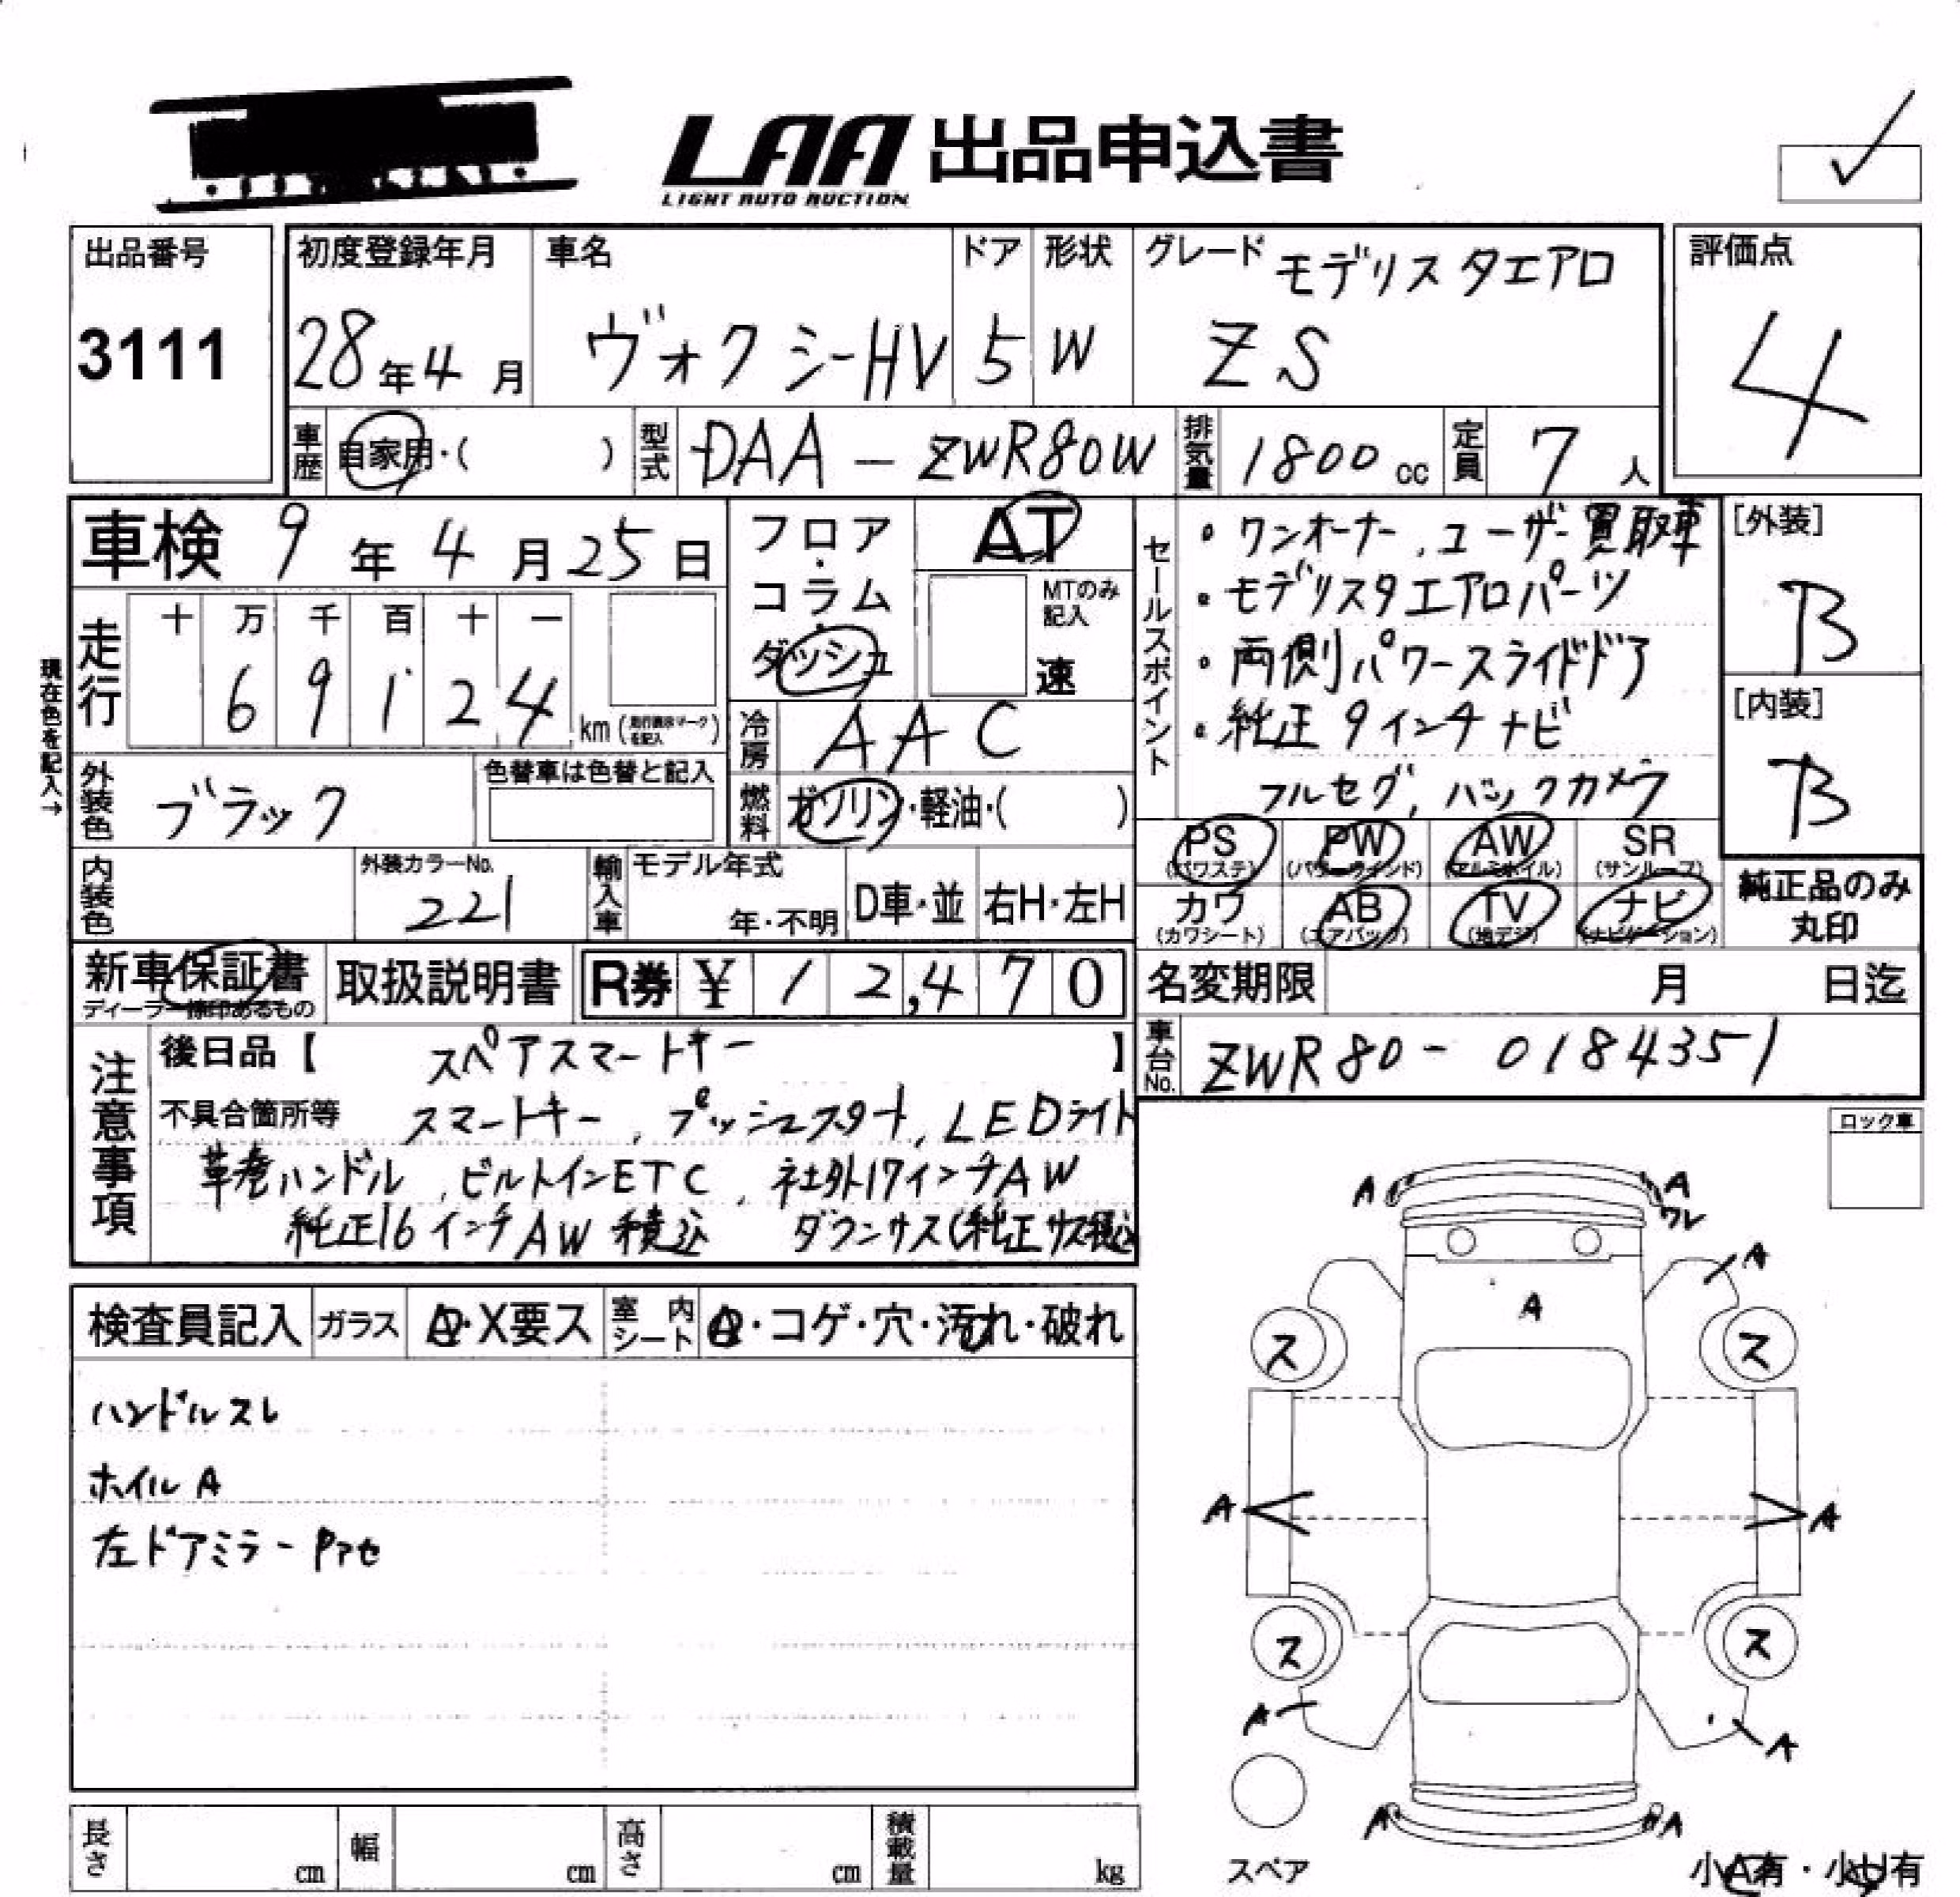 LAA 出品申込書
LIGHT AUTO AUCTION
出品番号
3111
初度登録年月
28年4月
車名
ヴォクシーHV
ドア
5
形状
W
グレード モデリスタエアロ
ZS
評価点
4
車歴 自家用・( )
型式 DAA-ZWR80W
排気量 1800cc
定員 7人
車検 9年4月25日
フロア・コラム・ダッシュ
AT
MTのみ記入
速
走行
十 万 千 百 十 一
6 9 1 2 4 km
現在色を記入→
冷房 AAC
外装色 ブラック
色替車は色替と記入
燃料 ガソリン・軽油・( )
内装色
外装カラーNo.
221
輸入車 モデル年式
年・不明
D車・並
右H・左H
セールスポイント
・ワンオーナー、ユーザー買取車
・モデリスタエアロパーツ
・両側パワースライドドア
・純正9インチナビ
フルセグ、バックカメラ
[外装]
B
[内装]
B
PS (パワステ)
PW (パワーウインド)
AW (アルミホイル)
SR (サンルーフ)
カワ (カワシート)
AB (エアバック)
TV (地デジ)
ナビ (ナビゲーション)
純正品のみ
丸印
新車保証書
ディーラー捺印あるもの
取扱説明書
R券 ¥12,470
名変期限 月 日迄
車台No. ZWR80-0184351
注意事項
後日品【 スペアスマートキー 】
不具合箇所等 スマートキー、プッシュスタート、LEDライト
革巻ハンドル、ビルトインETC、社外17インチAW
純正16インチAW積込 ダウンサス(純正サス積込
ロック車
検査員記入
ガラス A・X要ス
室内シート ・コゲ・穴・汚れ・破れ
ハンドルスレ
ホイルA
左ドアミラー
A
A
ワレ
A
A
ス
ス
A
A
ス
ス
A
A
A
A
スペア
小A有・小U有
長さ cm
幅 cm
高さ cm
積載量 kg